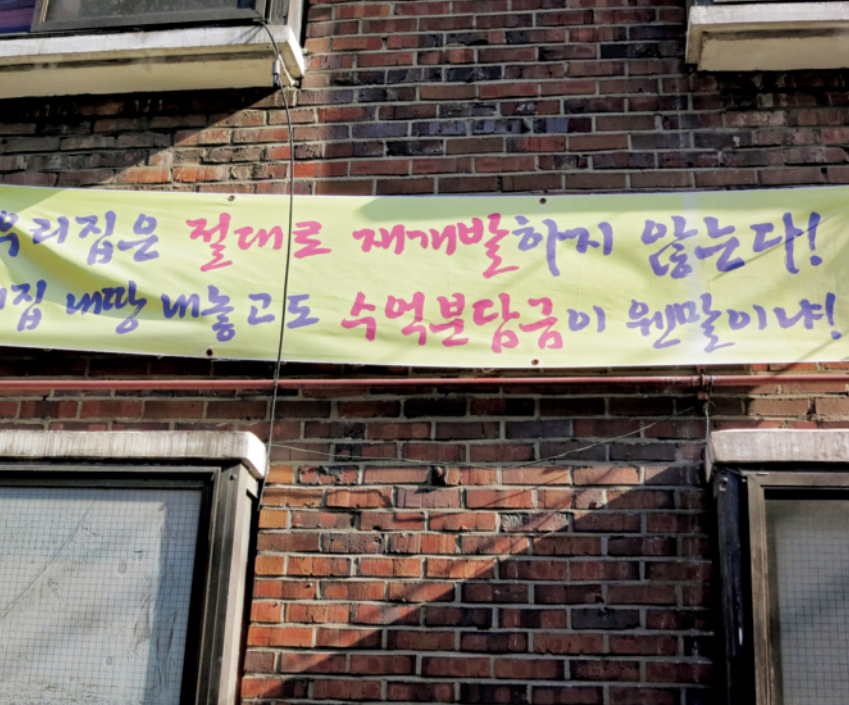 우리집은 절대로 재개발하지 않는다!
집 내땅 내놓고도 수억분담금이 웬말이냐!